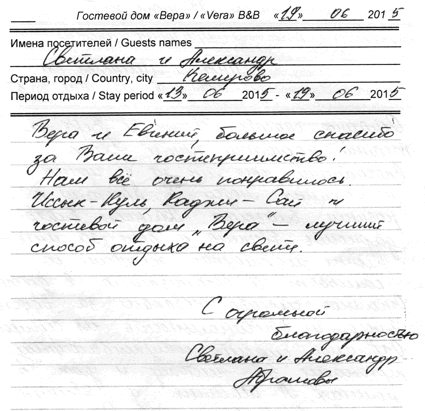 Гостевой дом «Вера» / «Vera» B&B «19» 06 2015
Имена посетителей / Guests names
Светлана и Александр
Страна, город / Country, city Кемерово
Период отдыха / Stay period «13» 06 2015 - «19» 06 2015
Вера и Евгений, большое спасибо
за Ваше гостеприимство!
Нам всё очень понравилось.
Иссык-Куль, Каджи-Сай и
гостевой дом „Вера" – лучший
способ отдыха на свете.
С огромной
благодарностью
Светлана и Александр
Абрамовы